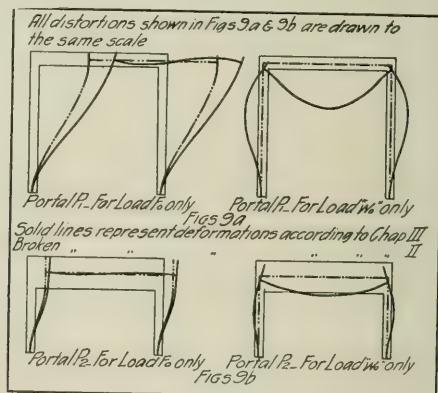 All distortions shown in Figs 9a & 9b are drawn to
the same scale
Portal P₁_ For Load F₀ only
Portal P₁_ For Load "w₀" only
Figs 9a
Solid lines represent deformations according to Chap III
Broken " " " " " " II
Portal P₂_ For Load F₀ only
Portal P₂_ For Load "w₀" only
Figs 9b